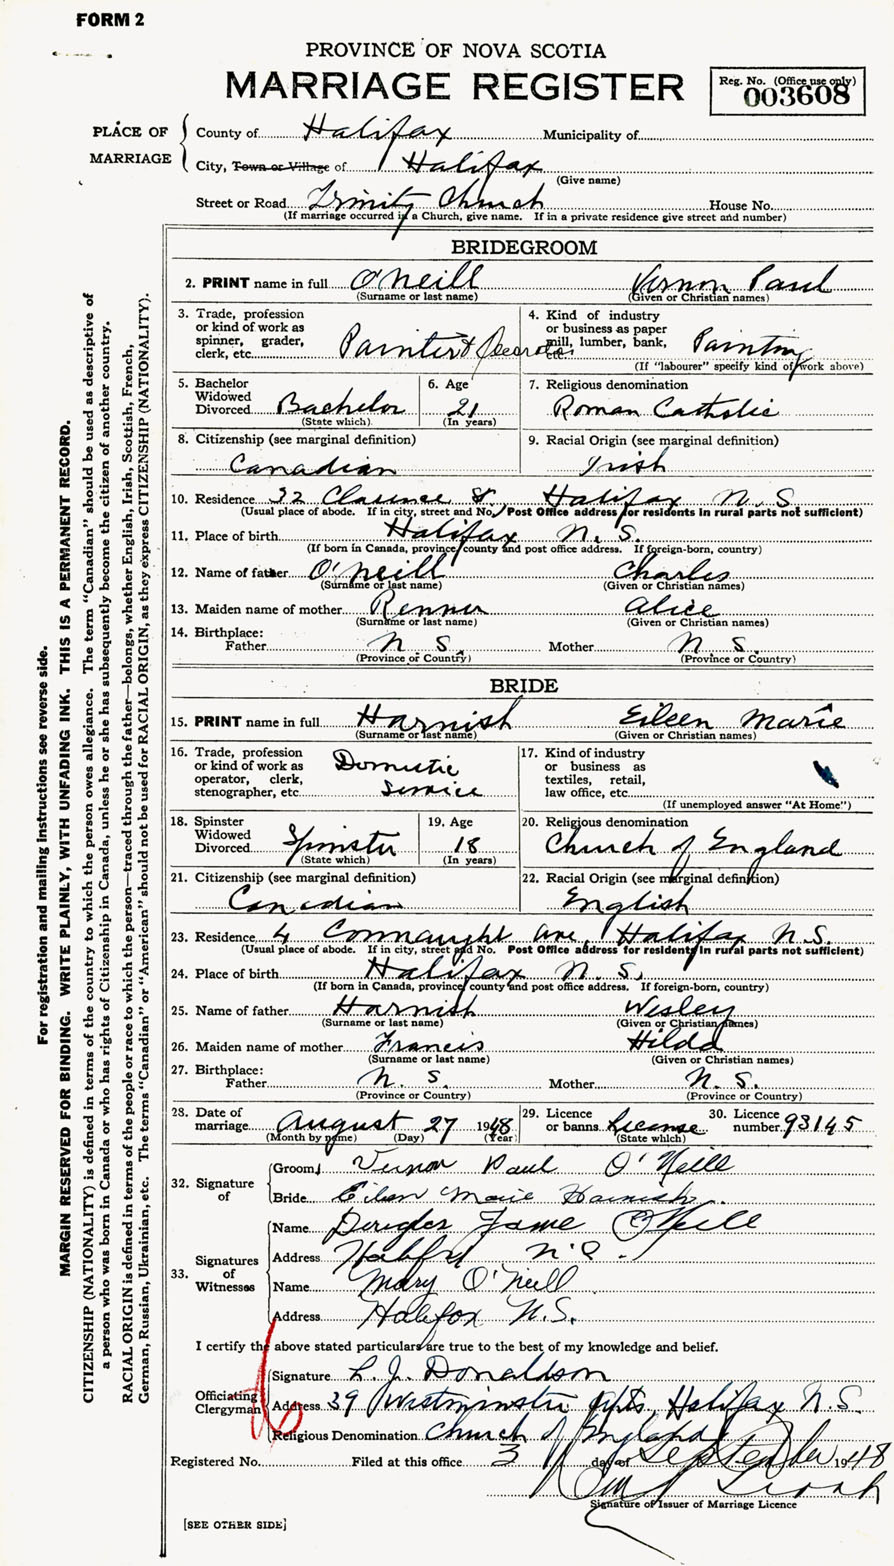 FORM 2
PROVINCE OF NOVA SCOTIA
MARRIAGE REGISTER
Reg. No. (Office use only)
003608
PLACE OF MARRIAGE
County of Halifax Municipality of
City, Town or Village of Halifax
(Give name)
Street or Road Trinity Church House No.
(If marriage occurred in a Church, give name. If in a private residence give street and number)
BRIDEGROOM
2. PRINT name in full O'Neill Vernon Paul
(Surname or last name) (Given or Christian names)
3. Trade, profession or kind of work as spinner, grader, clerk, etc. Painter &
4. Kind of industry or business as paper mill, lumber, bank, Painting
(If "labourer" specify kind of work above)
5. Bachelor Widowed Divorced Bachelor
(State which)
6. Age 21
(In years)
7. Religious denomination
Roman Catholic
8. Citizenship (see marginal definition)
Canadian
9. Racial Origin (see marginal definition)
Irish
10. Residence 32 Clarence St Halifax N.S
(Usual place of abode. If in city, street and No. Post Office address for residents in rural parts not sufficient)
11. Place of birth Halifax N.S.
(If born in Canada, province, county and post office address. If foreign-born, country)
12. Name of father O'Neill Charles
(Surname or last name) (Given or Christian names)
13. Maiden name of mother Renner Alice
(Surname or last name) (Given or Christian names)
14. Birthplace:
Father N.S. Mother N.S.
(Province or Country) (Province or Country)
BRIDE
15. PRINT name in full Harnish Eileen Marie
(Surname or last name) (Given or Christian names)
16. Trade, profession or kind of work as operator, clerk, stenographer, etc. Domestic Service
17. Kind of industry or business as textiles, retail, law office, etc.
(If unemployed answer "At Home")
18. Spinster Widowed Divorced Spinster
(State which)
19. Age 18
(In years)
20. Religious denomination
Church of England
21. Citizenship (see marginal definition)
Canadian
22. Racial Origin (see marginal definition)
English
23. Residence 4 Connaught ave, Halifax N.S.
(Usual place of abode. If in city, street and No. Post Office address for residents in rural parts not sufficient)
24. Place of birth Halifax N.S.
(If born in Canada, province, county and post office address. If foreign-born, country)
25. Name of father Harnish Wesley
(Surname or last name) (Given or Christian names)
26. Maiden name of mother Francis Hilda
(Surname or last name) (Given or Christian names)
27. Birthplace:
Father N.S. Mother N.S.
(Province or Country) (Province or Country)
28. Date of marriage August 27 1948
(Month by name) (Day) (Year)
29. Licence or banns License
(State which)
30. Licence number 93145
32. Signature of
Groom Vernon Paul O'Neill
Bride Eileen Marie Harnish
33. Signatures of Witnesses
Name O'Neill
Address Halifax N.S.
Name Mary O'Neill
Address Halifax N.S.
I certify the above stated particulars are true to the best of my knowledge and belief.
Officiating Clergyman
Signature L. J. Donaldson
Address 39 Westminster Apts, Halifax N.S.
Religious Denomination Church of England
Registered No. Filed at this office 3 day of September 1948
Signature of Issuer of Marriage Licence
[SEE OTHER SIDE]
For registration and mailing instructions see reverse side.
MARGIN RESERVED FOR BINDING. WRITE PLAINLY, WITH UNFADING INK. THIS IS A PERMANENT RECORD.
CITIZENSHIP (NATIONALITY) is defined in terms of the country to which the person owes allegiance. The term "Canadian" should be used as descriptive of
a person who was born in Canada or who has rights of Citizenship in Canada, unless he or she has subsequently become the citizen of another country.
RACIAL ORIGIN is defined in terms of the people or race to which the person—traced through the father—belongs, whether English, Irish, Scottish, French,
German, Russian, Ukrainian, etc. The terms "Canadian" or "American" should not be used for RACIAL ORIGIN, as they express CITIZENSHIP (NATIONALITY).